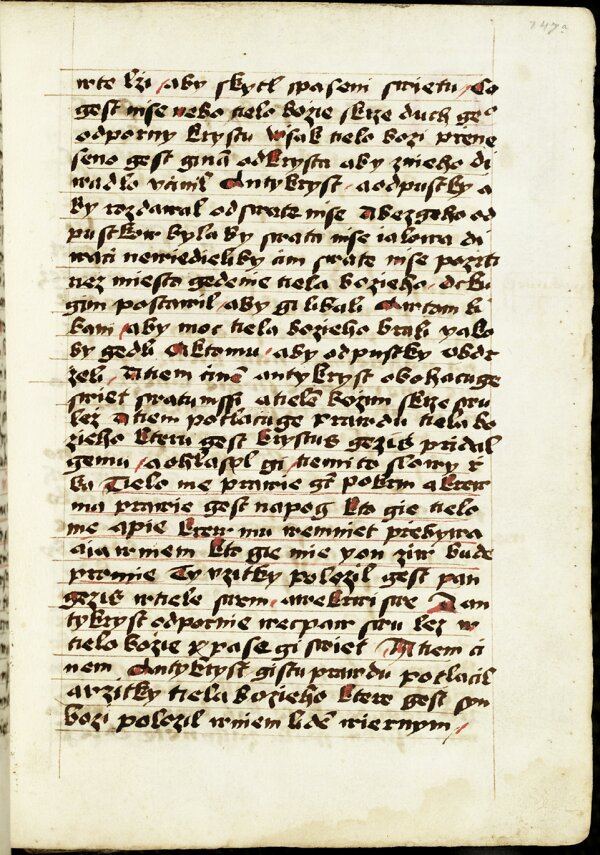 247a
wte lži aby skytl spaseni swietu Co
gest mse nebo tielo bozie skrze duch geo
odporny krystu wsak tielo bozi prene
seno gest ginā odkrysta aby znieho di
wadlo včinil Antykryst aodpustky a
by rozdawal odswate mse Abezgeho od
pustkow byla by swata mse ialowa di
wati newiedieliby cim swate mse poziti
nez miesto gedenie tiela bozieho dcku
gim postawil aby gi libali
bani aby moc tiela bozieho brali yako
by gedli Aktomu aby odpustky obdr
zeli Atiem činē antykryst obohacuge
swiet swatu mssi atielē bozim skrze swu
lez Atiem potlacuge prawdu tiela bo
zieho kteru gest krystus gezis przidal
gemu aohlasyl gi tiemito slowy
Tielo me prawie gt pokrm akrew
ma prawie gest napog kto gie tielo
me apie krew mu wemniet prebywa
aia wniem kto gie mie yon ziw bude
promie Ty vzitky polozil gest pan
gezis wtiele swem awekrwi swe An
tykryst odpornie wecpaw swu lez w
tielo bozie pase gi swiet Atiem či
nem Antykryst gistu prawdu potlacil
avzitky tiela bozieho ktere gest syn
bozi polozil wniem lidē wiernym